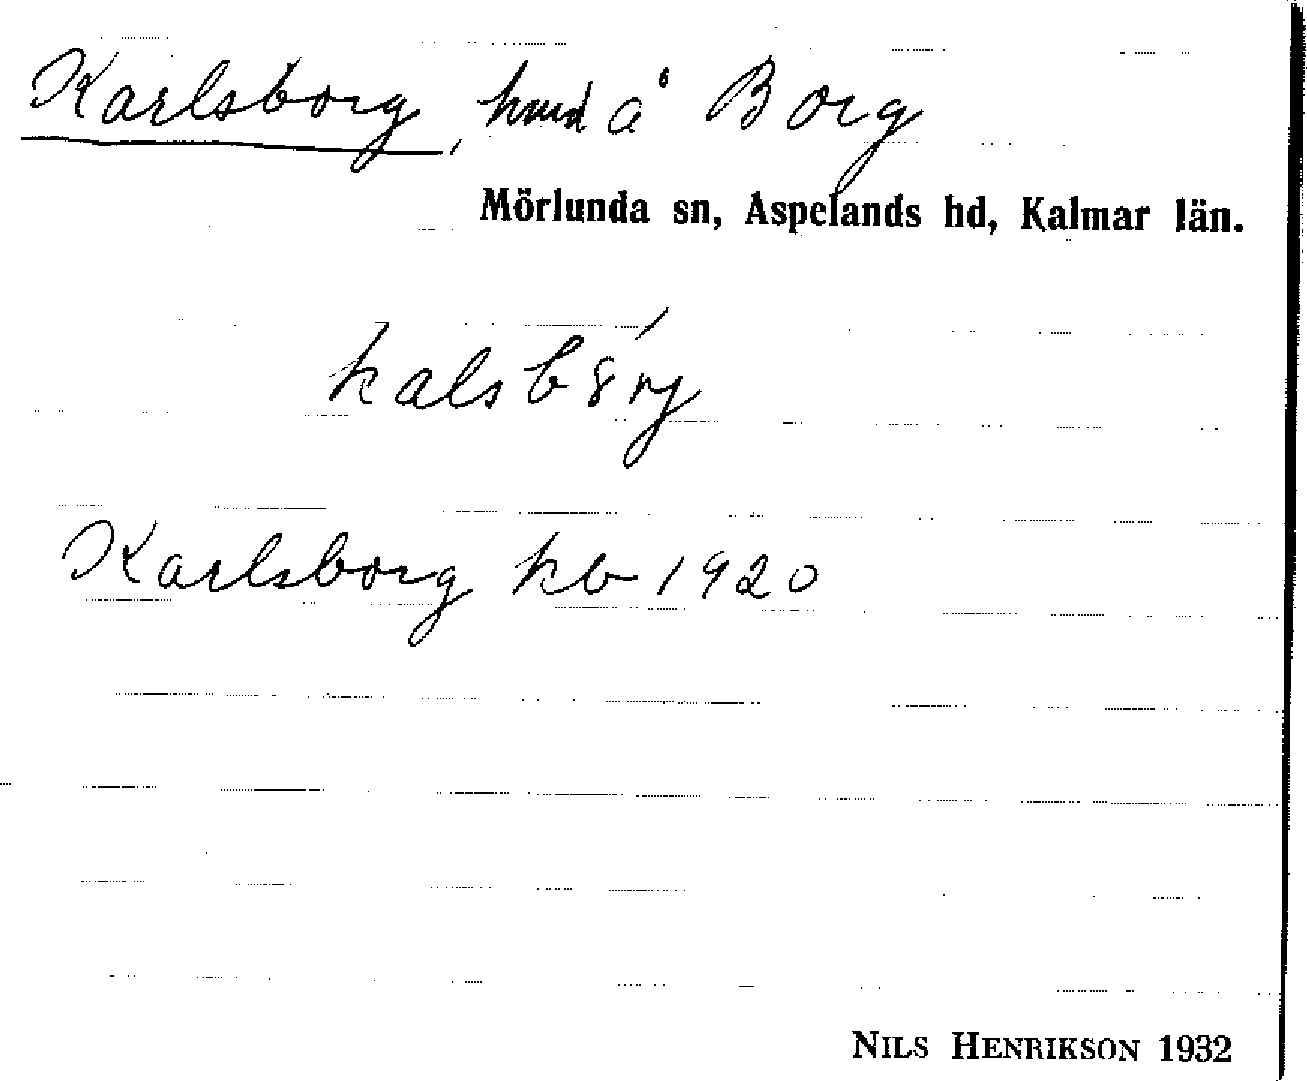 Karlsborg, hmd å Borg
Mörlunda sn, Aspelands hd, Kalmar län.
Karlsborg kb 1920
NILS HENRIKSON 1932